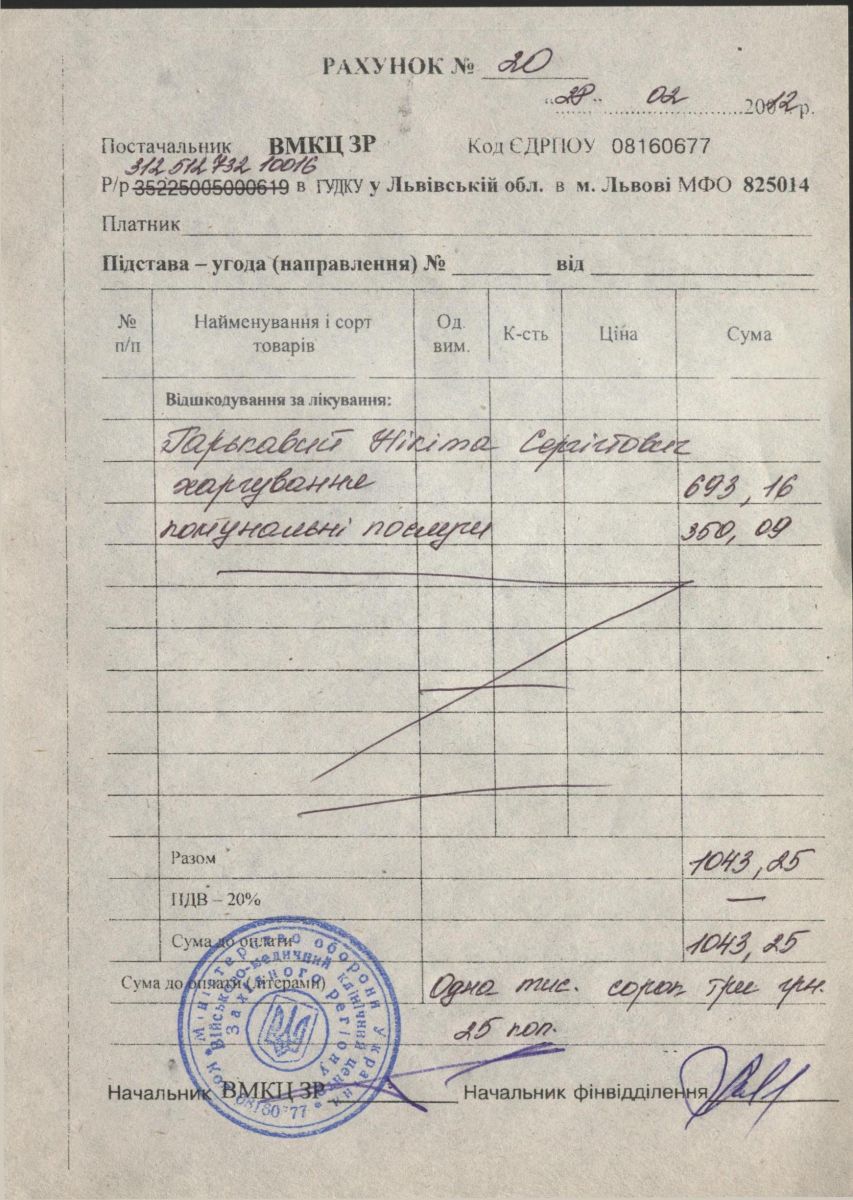 РАХУНОК № 20
"28" 02 2012 р.
Постачальник ВМКЦ ЗР Код ЄДРПОУ 08160677
312 512 732 10016
Р/р 35225005000619 в ГУДКУ у Львівській обл. в м. Львові МФО 825014
Платник
Підстава – угода (направлення) № від
№ п/п Найменування і сорт товарів Од. вим. К-сть Ціна Сума
Відшкодування за лікування:
Гарькавий Нікіта Сергійович
харчування 693,16
комунальні послуги 350,09
Разом 1043,25
ПДВ – 20% —
Сума до оплати 1043,25
Сума до оплати (літерами) Одна тис. сорок три грн.
25 коп.
Начальник ВМКЦ ЗР Начальник фінвідділення
Міністерство оборони України
Військово-медичний клінічний центр
Західного регіону
Код 08160677